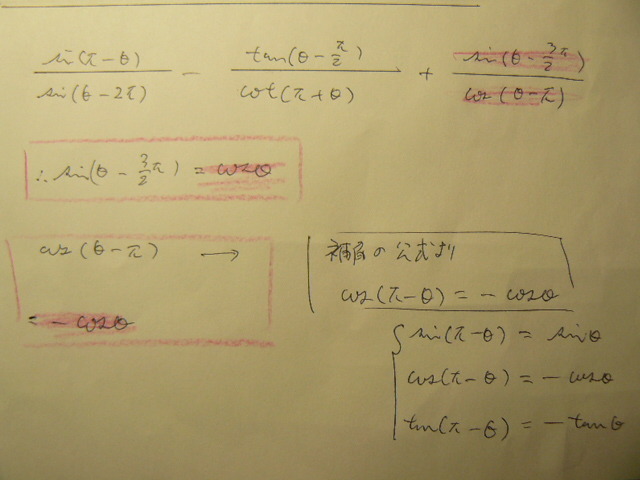 sin(π-θ)/sin(θ-2π) - tan(θ-π/2)/cot(π+θ) + sin(θ-3π/2)/cos(θ-π)
∴ sin(θ - 3/2π) = cosθ
cos(θ-π) →
= - cosθ
補角の公式より
cos(π-θ) = - cosθ
{ sin(π-θ) = sinθ
cos(π-θ) = - cosθ
tan(π-θ) = - tanθ